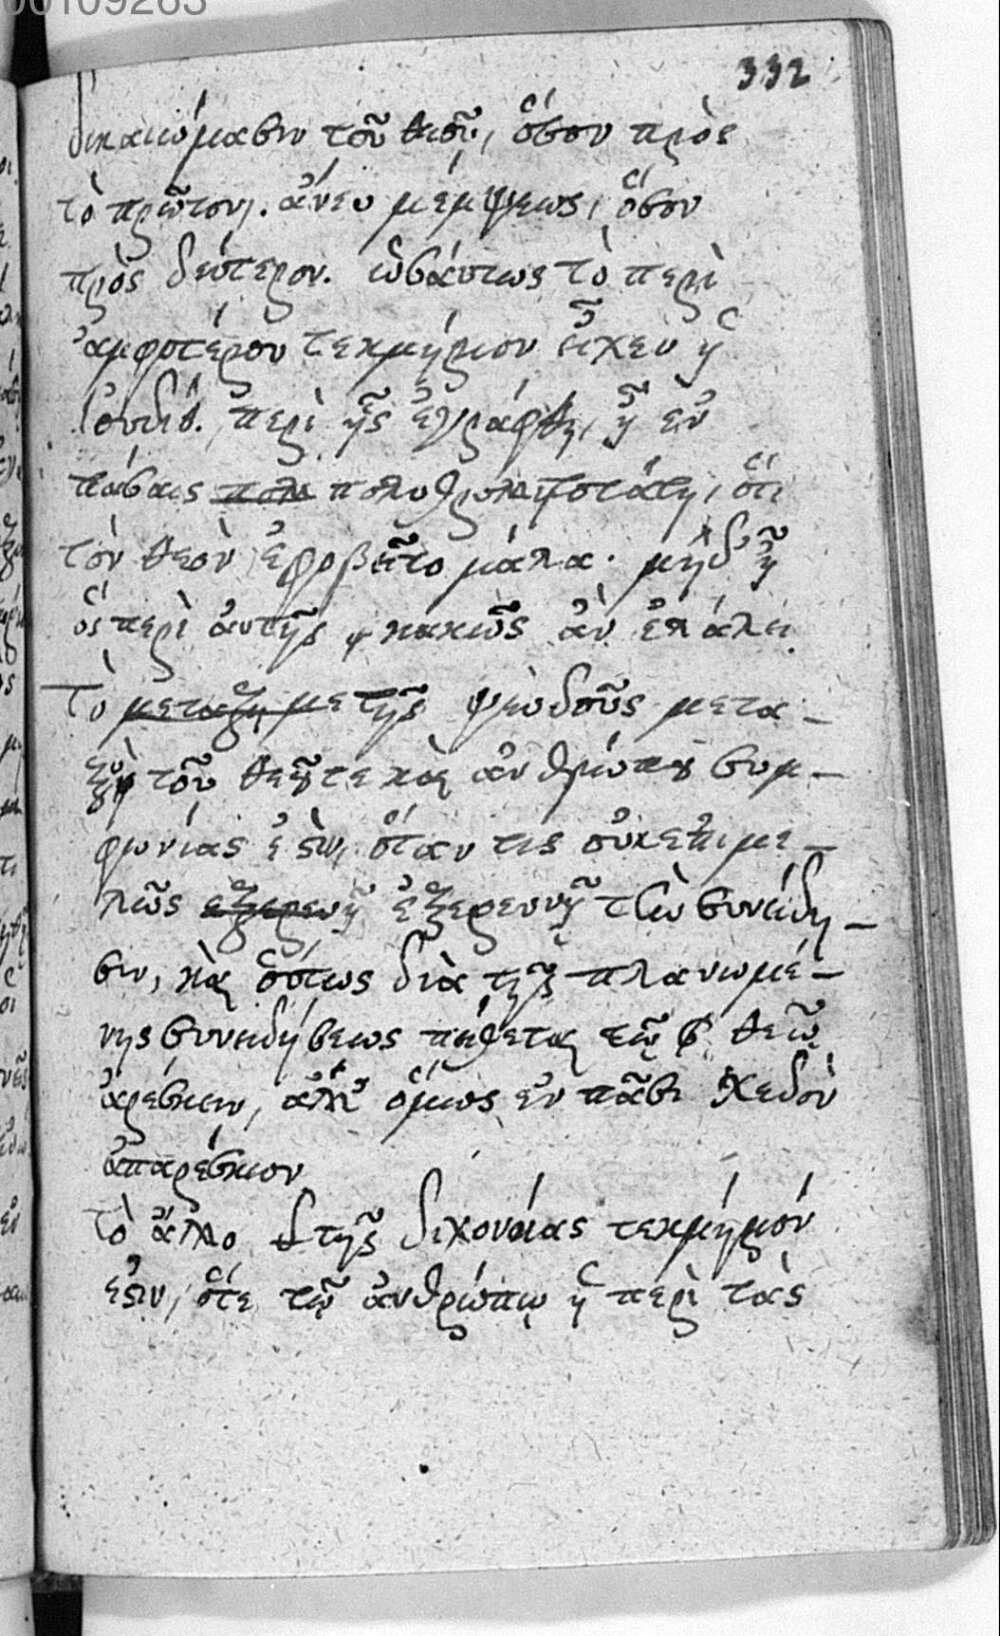 00109263
332
δικαιώμασιν τοῦ θεοῦ, ὅσον πρὸς
τὸ πρῶτον. ἄνευ μέμψεως, ὅσον
πρὸς δεύτερον. ὡσάυτως τὸ περὶ
ἀμφοτέρου τεκμήριον εἶχεν ἡ
Ἰουδὶθ. περὶ ἧς ἐγράφθη, ἦ ἐν
πάσαις πολυθρυλητοτάτη, ὅτι
τὸν θεὸν ἐφοβεῖτο μάλα. μηδ' ἦ
ὃς περὶ ἀυτῆς κακῶς ἂν
Τὸ μεταξὺ με τῆς ψευδοῦς μετα-
ξὺ τοῦ θεοῦ τε καὶ ἀνθρώπου συμ-
φωνίας ἐστὶν, ὅταν τις οὐκ ἐπιμε-
λῶς ἐξερευνᾷ ἐξερευνᾷ τὴν συνείδη-
σιν, καὶ οὕτως διὰ τῆς πλανωμέ-
νης συνειδήσεως πείθεται τῷ θεῷ
ἀρέσκειν, ἀλλ' ὅμως ἐν πᾶσι σχεδὸν
ἀπαρέσκων
Τὸ ἄλλο τῆς διχονοίας τεκμήριόν
ἐστιν, ὅτε τῷ ἀνθρώπῳ ἡ περὶ τὰς